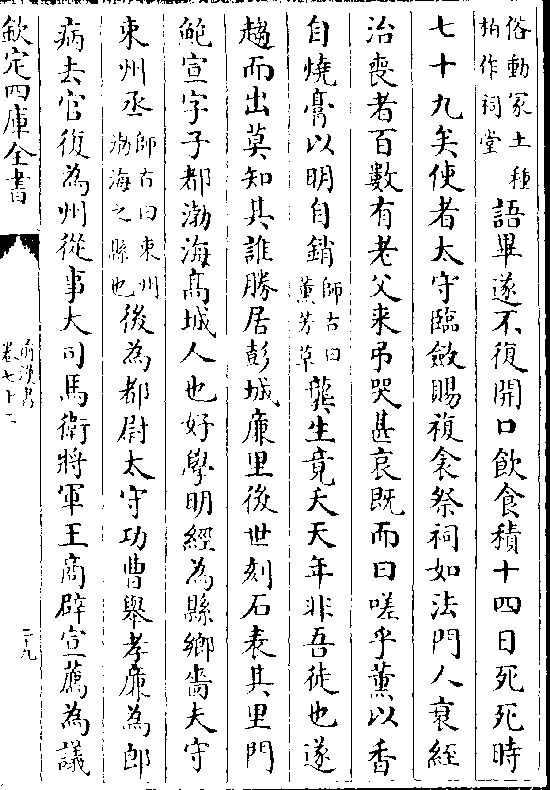 俗動冡土種柏作祠堂語畢遂不復開口飲食積十四日死死時
七十九矣使者太守臨斂賜複衾祭祠如法門人衰絰
治喪者百數有老父来弔哭甚哀既而曰嗟乎薰以香
自燒膏以明自銷師古曰薰芳草龔生竟夭天年非吾徒也遂
趨而出莫知其誰勝居彭城廉里後世刻石表其里門
鮑宣字子都渤海髙城人也好學明經為縣鄉嗇夫守
束州丞師古曰束州渤海之縣也後為都尉太守功曹舉孝廉為郎
病去官復為州從事大司馬衛將軍王商辟宣薦為議
欽定四庫全書
前漢書
卷七十二